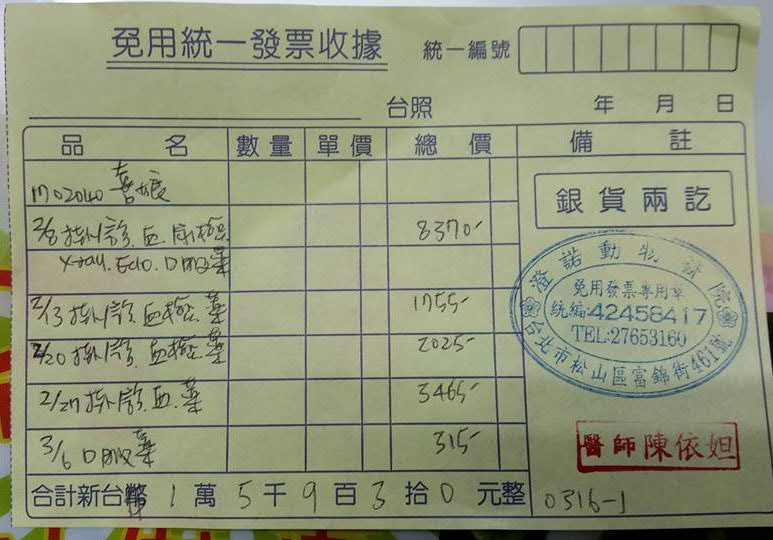 免用統一發票收據
統一編號
台照 年 月 日
品名 數量 單價 總價 備註
1702040 喜娘
銀貨兩訖
2/8 掛診.血.尿檢 8370-
X-ray. Echo. 口服藥
2/13 掛診.血檢.藥 1755-
2/20 掛診.血檢.藥 2025-
2/27 掛診.血.藥 3465-
3/6 口服藥 315-
澄諾動物病院
免用發票專用章
統編:42458417
TEL:27653160
台北市松山區富錦街461號
醫師陳依妲
合計新台幣 1 萬 5 千 9 百 3 拾 0 元整
0316-1